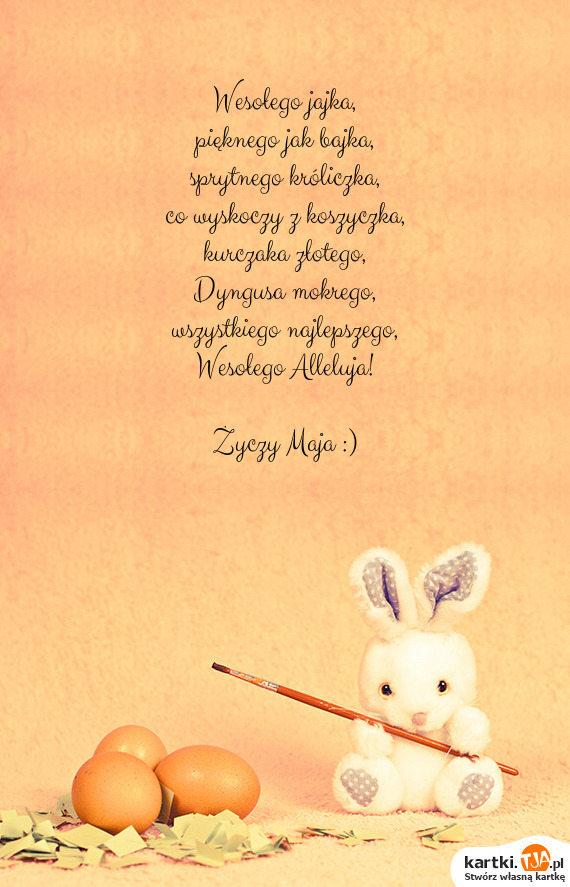 Wesołego jajka,
pięknego jak bajka,
sprytnego króliczka,
co wyskoczy z koszyczka,
kurczaka złotego,
Dyngusa mokrego,
wszystkiego najlepszego,
Wesołego Alleluja!
Życzy Maja :)
kartki.TJA.pl
Stwórz własną kartkę